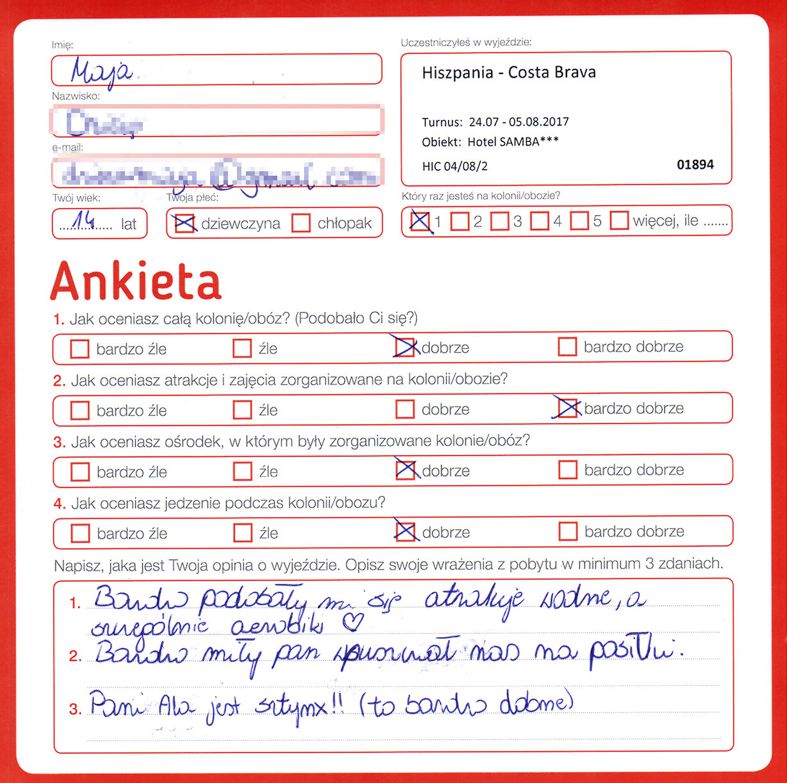 Imię:
Maja
Nazwisko:
e-mail:
@gmail.com
Twój wiek:
14 lat
Twoja płeć:
dziewczyna chłopak
Uczestniczyłeś w wyjeździe:
Hiszpania - Costa Brava
Turnus: 24.07 - 05.08.2017
Obiekt: Hotel SAMBA***
HIC 04/08/2 01894
Który raz jesteś na kolonii/obozie?
1 2 3 4 5 więcej, ile .......
Ankieta
1. Jak oceniasz całą kolonię/obóz? (Podobało Ci się?)
bardzo źle źle dobrze bardzo dobrze
2. Jak oceniasz atrakcje i zajęcia zorganizowane na kolonii/obozie?
bardzo źle źle dobrze bardzo dobrze
3. Jak oceniasz ośrodek, w którym były zorganizowane kolonie/obóz?
bardzo źle źle dobrze bardzo dobrze
4. Jak oceniasz jedzenie podczas kolonii/obozu?
bardzo źle źle dobrze bardzo dobrze
Napisz, jaka jest Twoja opinia o wyjeździe. Opisz swoje wrażenia z pobytu w minimum 3 zdaniach.
1. Bardzo podobały mi się atrakcje wodne, a
szczególnie aerobik ♡
2. Bardzo miły pan wpuszczał nas na posiłki.
3. Pani Ala jest sztynx!! (to bardzo dobrze)